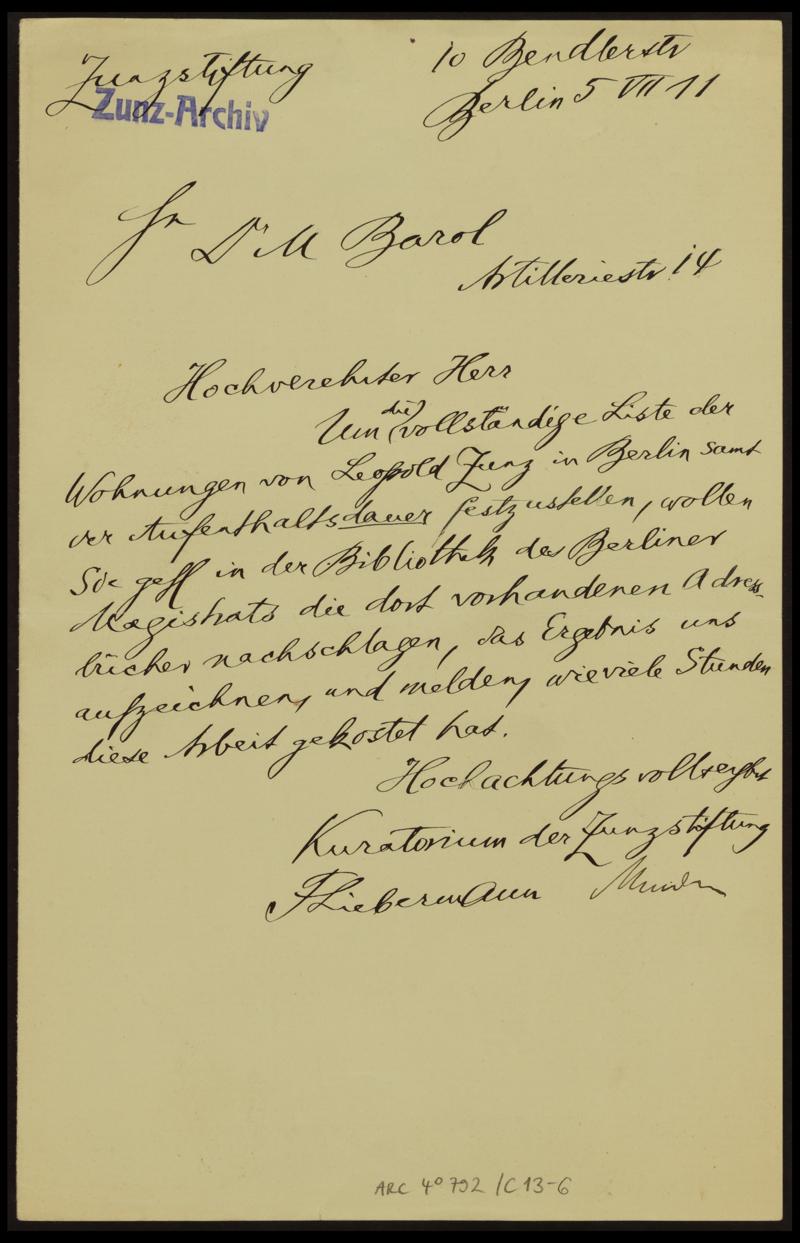 Zunzstiftung
10 Bendlerstr
Zunz-Archiv
Berlin 5 VII 11
Hn Dr M Barol
Artilleriestr. 14
Hochverehrter Herr
Um die vollständige Liste der
Wohnungen von Leopold Zunz in Berlin samt
der Aufenthaltsdauer festzustellen, wollen
Sie gefl in der Bibliothek des Berliner
Magistrats die dort vorhandenen Adress-
bücher nachschlagen, das Ergebnis uns
aufzeichnen, und melden, wieviele Stunden
diese Arbeit gekostet hat.
Hochachtungsvoll ergbst
Kuratorium der Zunzstiftung
FLiebermann
ARC 4º 792 /C 13-6